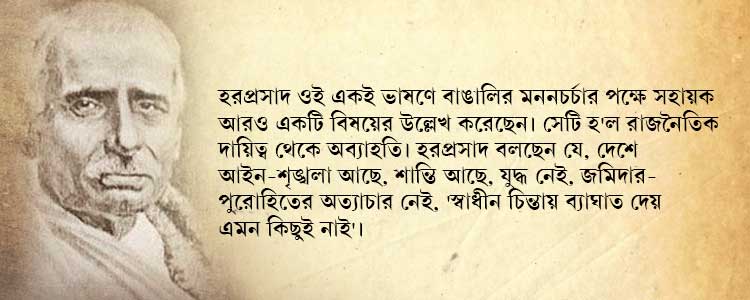 হরপ্রসাদ ওই একই ভাষণে বাঙালির মননচর্চার পক্ষে সহায়ক
আরও একটি বিষয়ের উল্লেখ করেছেন। সেটি হ'ল রাজনৈতিক
দায়িত্ব থেকে অব্যাহতি। হরপ্রসাদ বলছেন যে, দেশে
আইন-শৃঙ্খলা আছে, শান্তি আছে, যুদ্ধ নেই, জমিদার-
পুরোহিতের অত্যাচার নেই, 'স্বাধীন চিন্তায় ব্যাঘাত দেয়
এমন কিছুই নাই'।